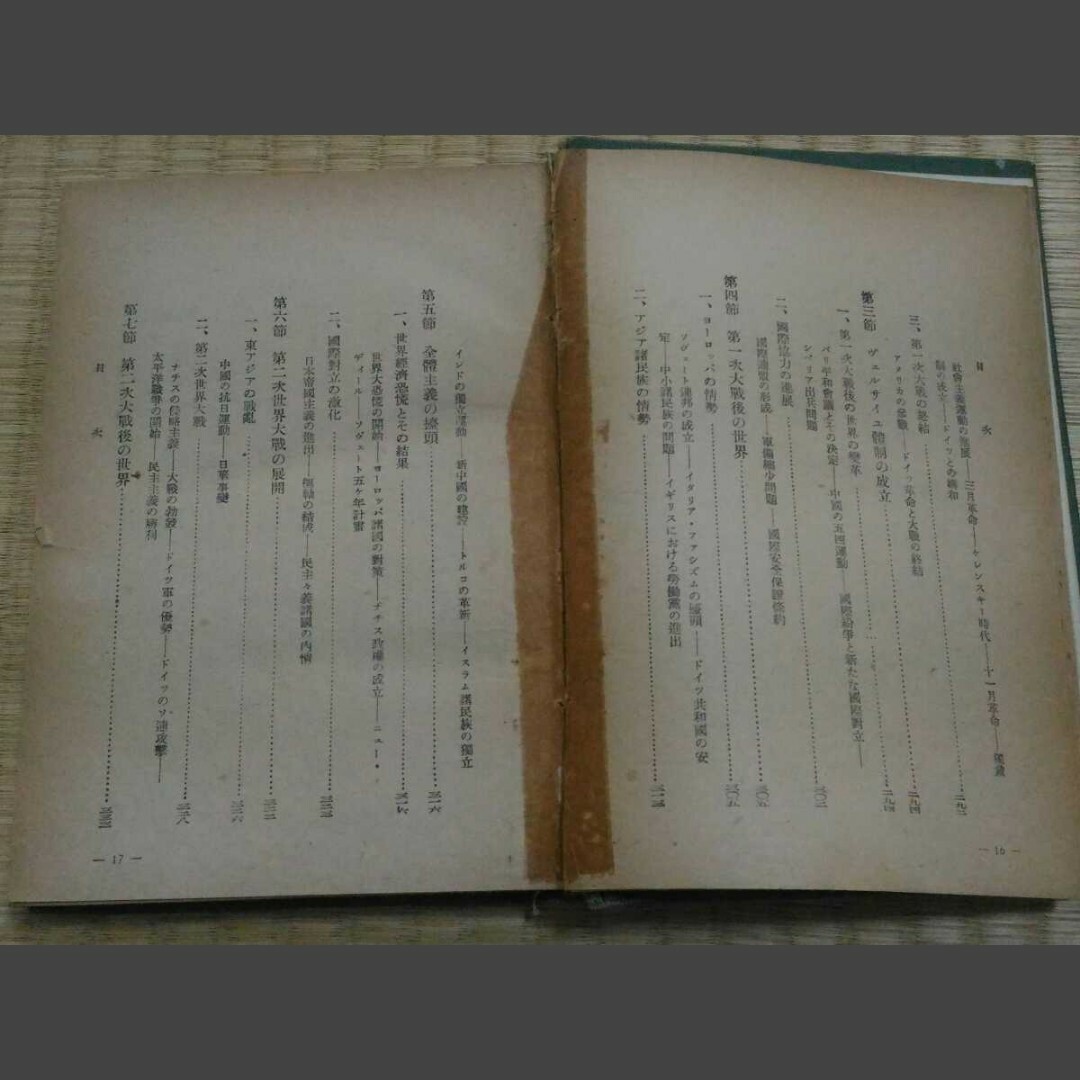 目次
社會主義運動の進展——三月革命——ケレンスキー時代——十一月革命——
制の成立——ドイツとの講和……二九二
三、第一次大戰の終結……二九四
アメリカの參戰——ドイツ革命と大戰の終結
第三節 ヴェルサイユ體制の成立……二九四
一、第一次大戰後の世界の變革
パリ平和會議とその決定——中國の五四運動——國際紛爭と新たな國際對立——
シベリア出兵問題
二、國際協力の進展
國際連盟の形成——軍備縮少問題——國際安全保證條約
第四節 第一次大戰後の世界……三〇五
一、ヨーロッパの情勢
ソヴェート連邦の成立——イタリア・ファシズムの擡頭——ドイツ共和國の安
定——中小諸民族の問題——イギリスにおける勞働黨の進出
二、アジア諸民族の情勢
— 16 —
インドの獨立運動——新中國の建設——トルコの革新——イスラム諸民族の獨立
第五節 全體主義の擡頭……三一六
一、世界經濟恐慌とその結果……三一六
世界大恐慌の開始——ヨーロッパ諸國の對策——ナチス政權の成立——ニュー・
ディール——ソヴェート五ヶ年計畫
二、國際對立の激化
日本帝國主義の進出——樞軸の結成——民主々義諸國の內情
第六節 第二次世界大戰の展開
一、東アジアの戰亂……三二六
中國の抗日運動——日華事變
二、第二次世界大戰……三二八
ナチスの侵略主義——大戰の勃發——ドイツ軍の優勢——ドイツのソ連攻擊——
太平洋戰爭の開始——民主主義の勝利
第七節 第二次大戰後の世界
目次
— 17 —